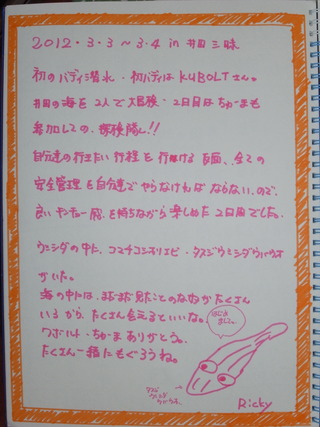 2012・3・3～3・4 in 井田三昧
初のバディ潜水・初バディは KUBOLTさん。
井田の海を2人で大冒険・2日目はちゅーまも
参加しての、探検隊し!!
自分達の行きたい行程を行ける反面、全ての
安全管理を自分達でやらなければならない、ので、
良いキンチョー感を持ちながら楽しめた2日間でした。
ウミシダの中に、コマチコシオリエビ・タスジウミシダウバウオ
がいた。
海の中には、まだまだ見たことのないなかがたくさん
いるから、たくさん会えるといいな。
クボルト・ちゅーまありがとう。
たくさん一緒にもぐろうね。
はじめまして。
ウミシダウバウオ
Ricky